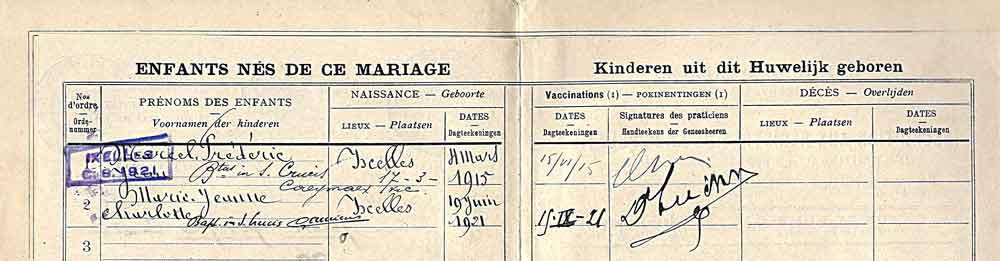 ENFANTS NÉS DE CE MARIAGE Kinderen uit dit Huwelijk geboren
Nos d'ordre Ordenummer
PRÉNOMS DES ENFANTS
Voornamen der kinderen
NAISSANCE — Geboorte
LIEUX — Plaatsen
DATES
Dagteekeningen
Vaccinations (1) — POKINENTINGEN (1)
DATES
Dagteekeningen
Signatures des praticiens
Handteekens der Geneesheeren
DÉCÈS — Overlijden
LIEUX — Plaatsen
DATES
Dagteekeningen
IXELLES
Marcel, Fréderic Ixelles 4 Mars
in S. Crucis 17-3- 1915 15/VI/15
2 Marie Jeanne Ixelles 19 Juin
Charlotte 1921 15-IX-21
Bapt. in S. Crucis
3